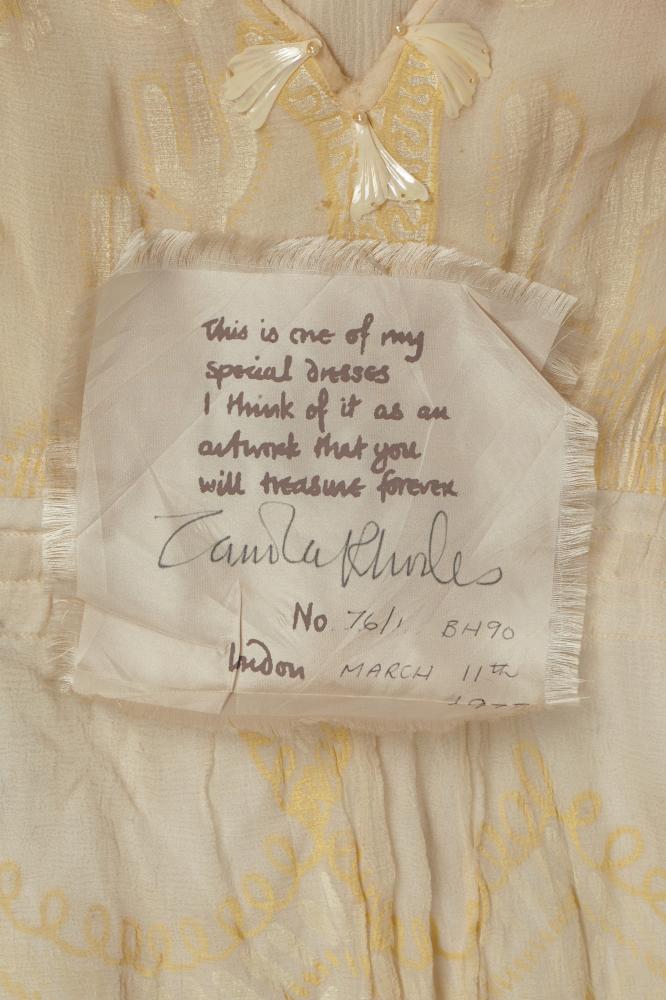 This is one of my
special dresses
I think of it as an
artwork that you
will treasure forever
Zandra Rhodes
No 76/1 BH90
London MARCH 11TH